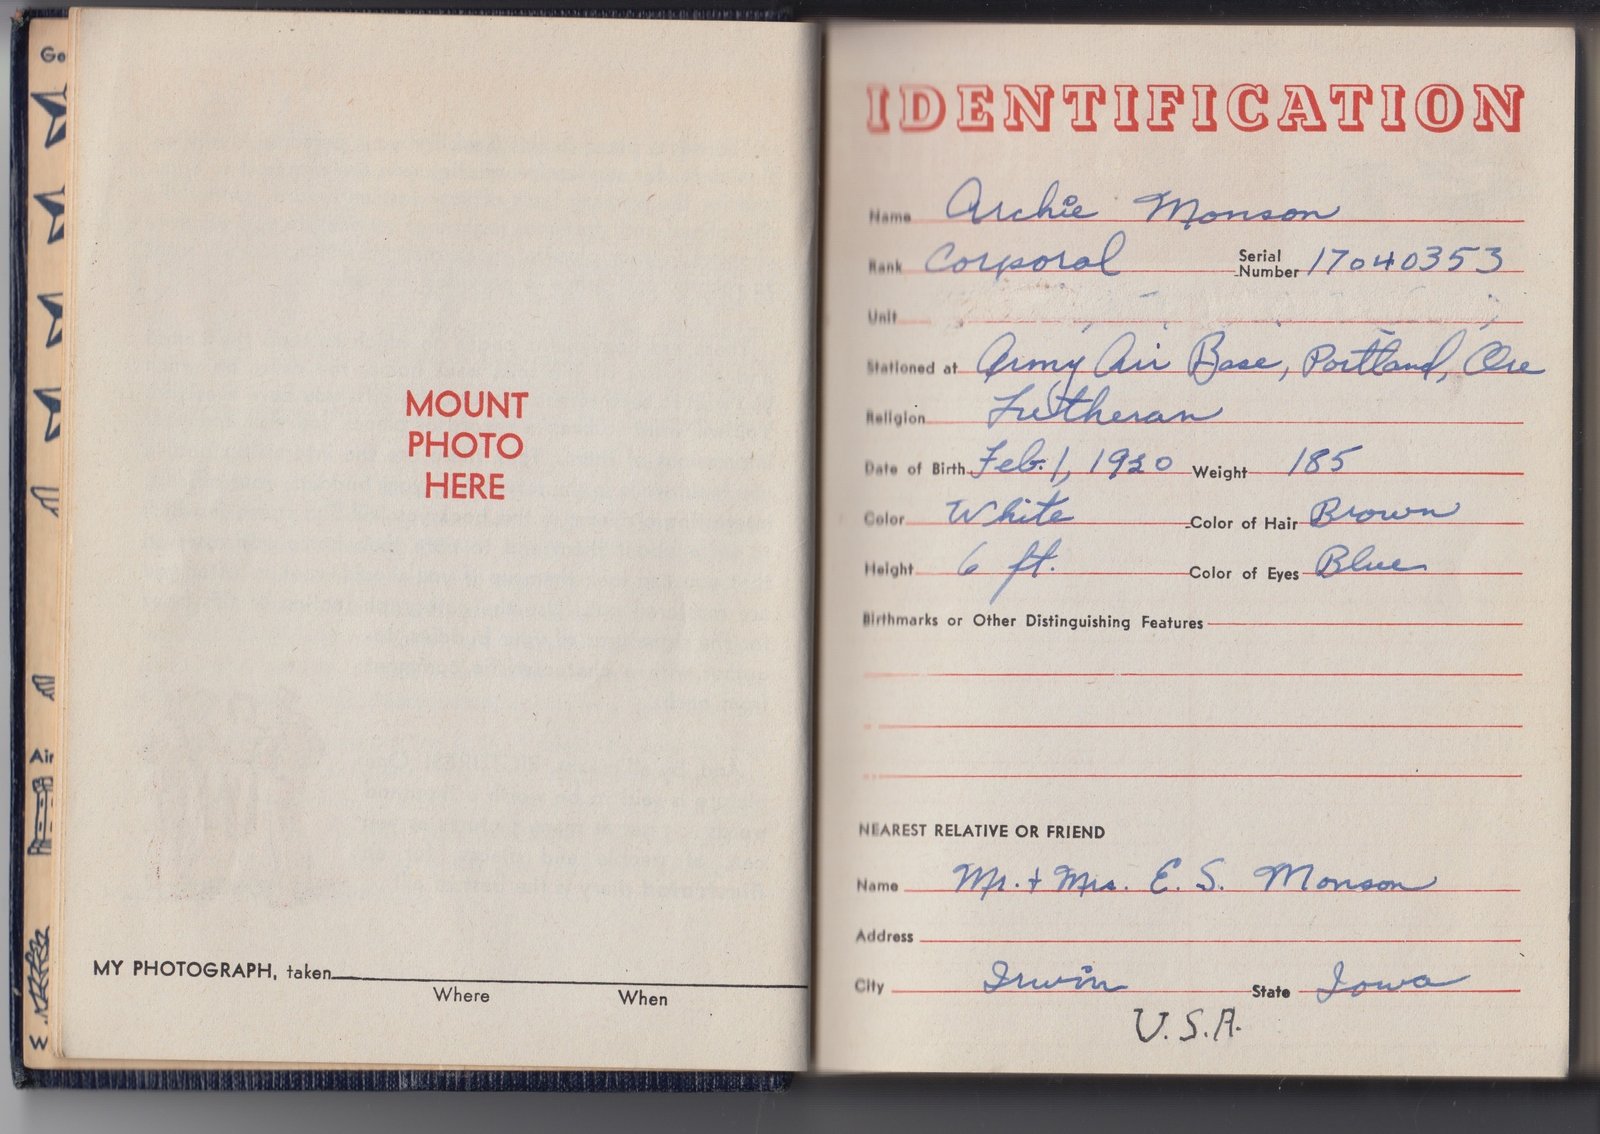 Ge
Air
W
MOUNT
PHOTO
HERE
MY PHOTOGRAPH, taken
Where When
IDENTIFICATION
Name Archie Monson
Rank Corporal Serial Number 17040353
Unit
Stationed at Army Air Base, Portland, Ore
Religion Lutheran
Date of Birth Feb. 1, 1920 Weight 185
Color White Color of Hair Brown
Height 6 ft. Color of Eyes Blue
Birthmarks or Other Distinguishing Features
NEAREST RELATIVE OR FRIEND
Name Mr. + Mrs. E. S. Monson
Address
City Irwin State Iowa
U.S.A.